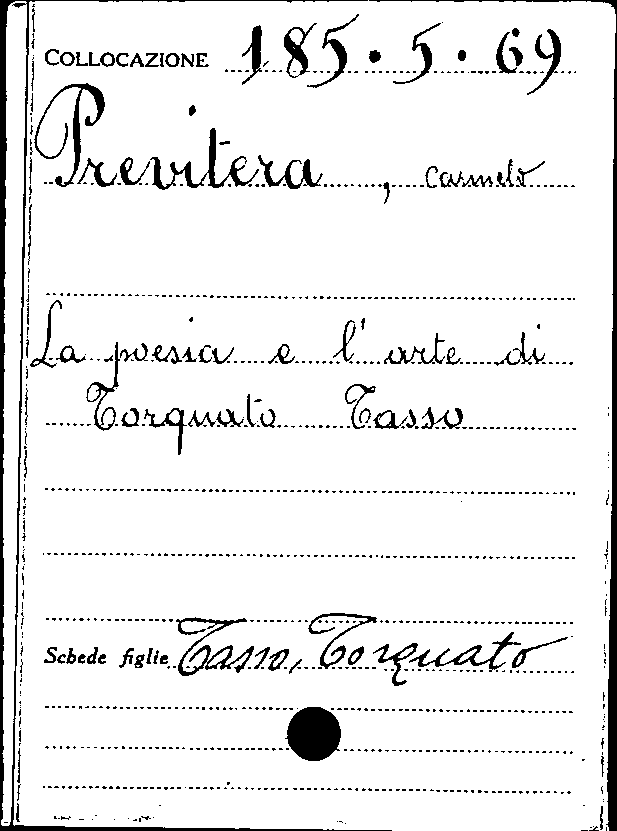 COLLOCAZIONE 185.5.69
Previtera, Carmelo
La poesia e l'arte di
Torquato Tasso
Schede figlie Tasso, Torquato